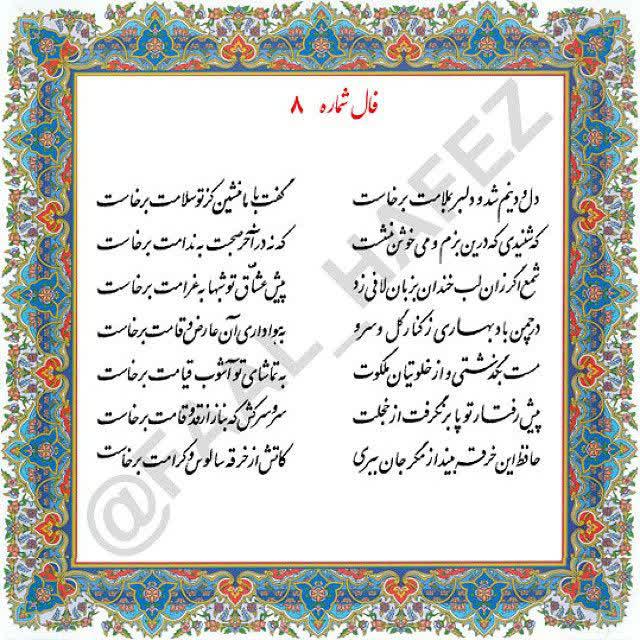 فال شماره ۸
دل و دینم شد و دلبر بملامت برخاست گفت با ما منشین کز تو سلامت برخاست
که شنیدی که درین بزم دمی خوش بنشست که نه در آخر صحبت به ندامت برخاست
شمع اگر زان لب خندان بزبان لافی زد پیش عشاق تو شبها به غرامت برخاست
در چمن باد بهاری ز کنار گل و سرو به هواداری آن عارض و قامت برخاست
مست بگذشتی و از خلوتیان ملکوت به تماشای تو آشوب قیامت برخاست
پیش رفتار تو پا برنگرفت از خجلت سرو سرکش که بناز از قد و قامت برخاست
حافظ این خرقه بینداز مگر جان ببری کاتش از خرقه سالوس و کرامت برخاست
@FAAL_HAFEZ